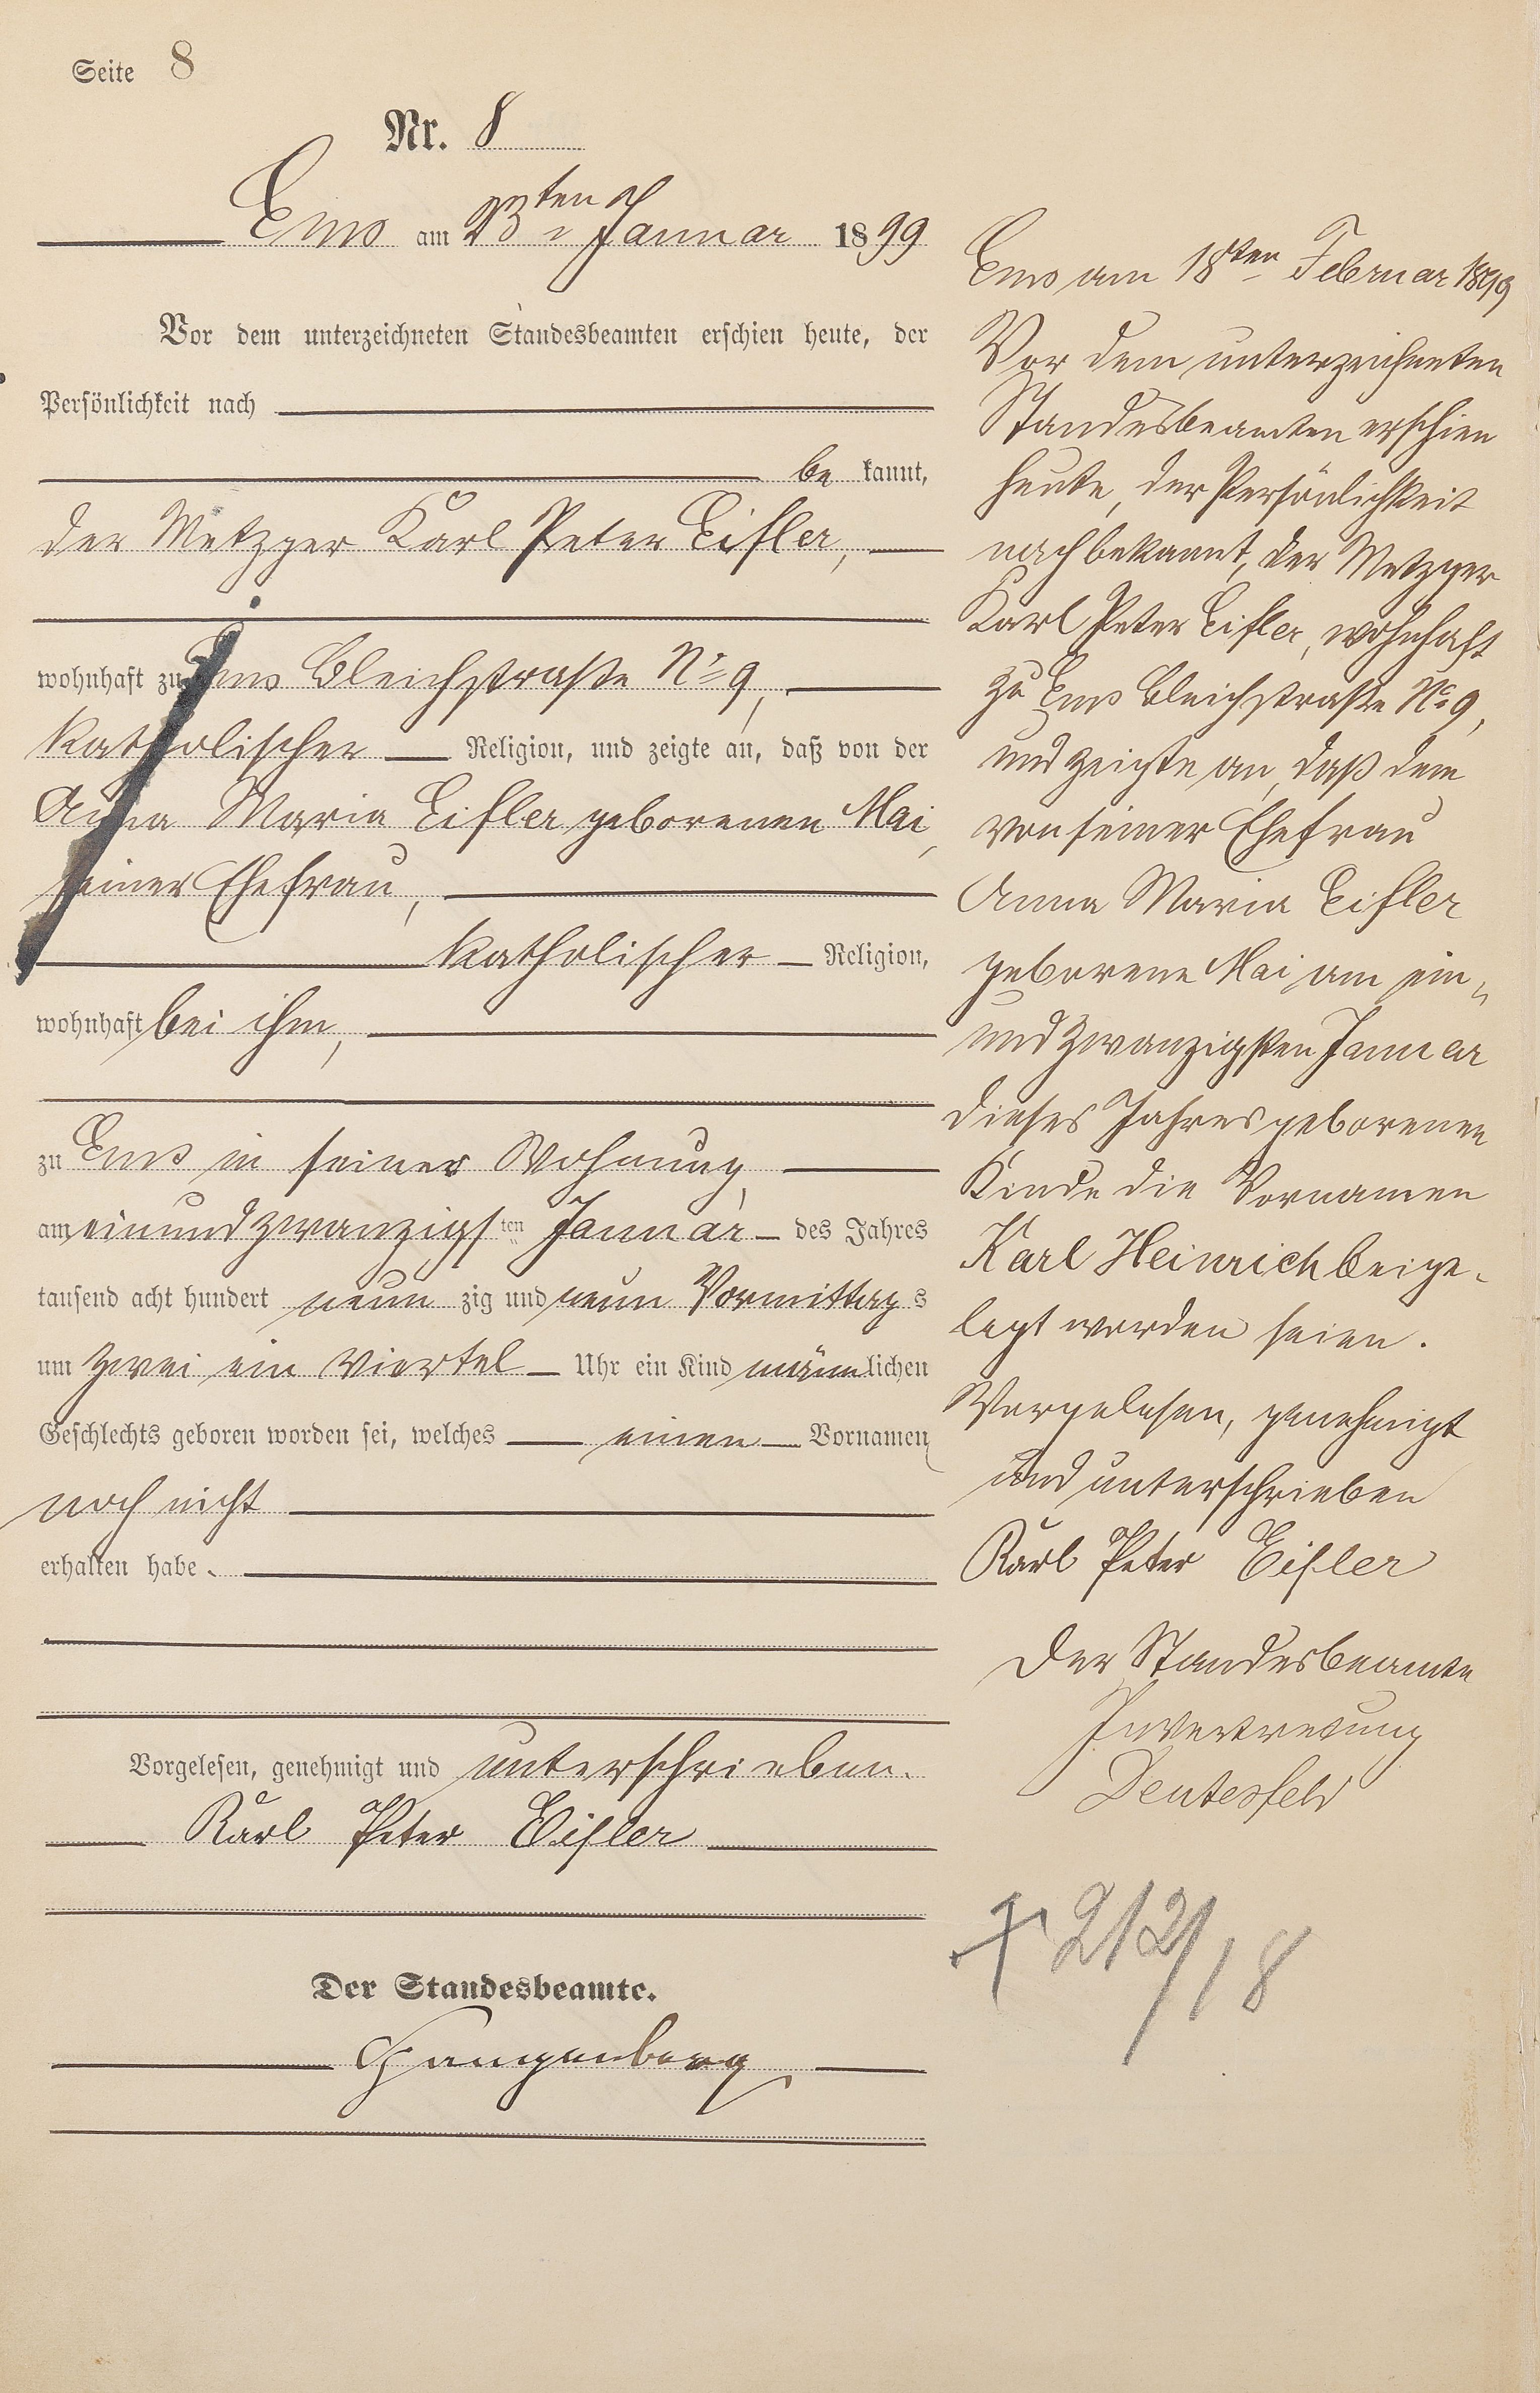 Seite 8
Nr. 8
Ems am 23ten Januar 1899
Vor dem unterzeichneten Standesbeamten erschien heute, der
Persönlichkeit nach
be kannt,
der Metzger Karl Peter Eifler,
wohnhaft zu Ems Bleichstraße No 9,
katholischer Religion, und zeigte an, daß von der
Anna Maria Eifler geborenen Mai,
seiner Ehefrau,
katholischer Religion,
wohnhaft bei ihm,
zu Ems in seiner Wohnung,
am einundzwanzigsten Januar des Jahres
tausend acht hundert neun zig und neun Vormittags
um zwei ein Viertel Uhr ein Kind männlichen
Geschlechts geboren worden sei, welches einen Vornamen
noch nicht
erhalten habe.
Vorgelesen, genehmigt und unterschrieben.
Karl Peter Eifler
Der Standesbeamte.
Ems am 18ten Februar 1899
Vor dem unterzeichneten
Standesbeamten erschien
heute, der Persönlichkeit
nach bekannt, der Metzger
Karl Peter Eifler, wohnhaft
zu Ems Bleichstraße No 9,
und zeigte an, daß dem
von seiner Ehefrau
Anna Maria Eifler
geborene Mai am ein=
und zwanzigsten Januar
dieses Jahres geborenen
Kinde die Vornamen
Karl Heinrich beige-
legt worden seien.
Vorgelesen, genehmigt
und unterschrieben
Karl Peter Eifler
Der Standesbeamte
In Vertretung